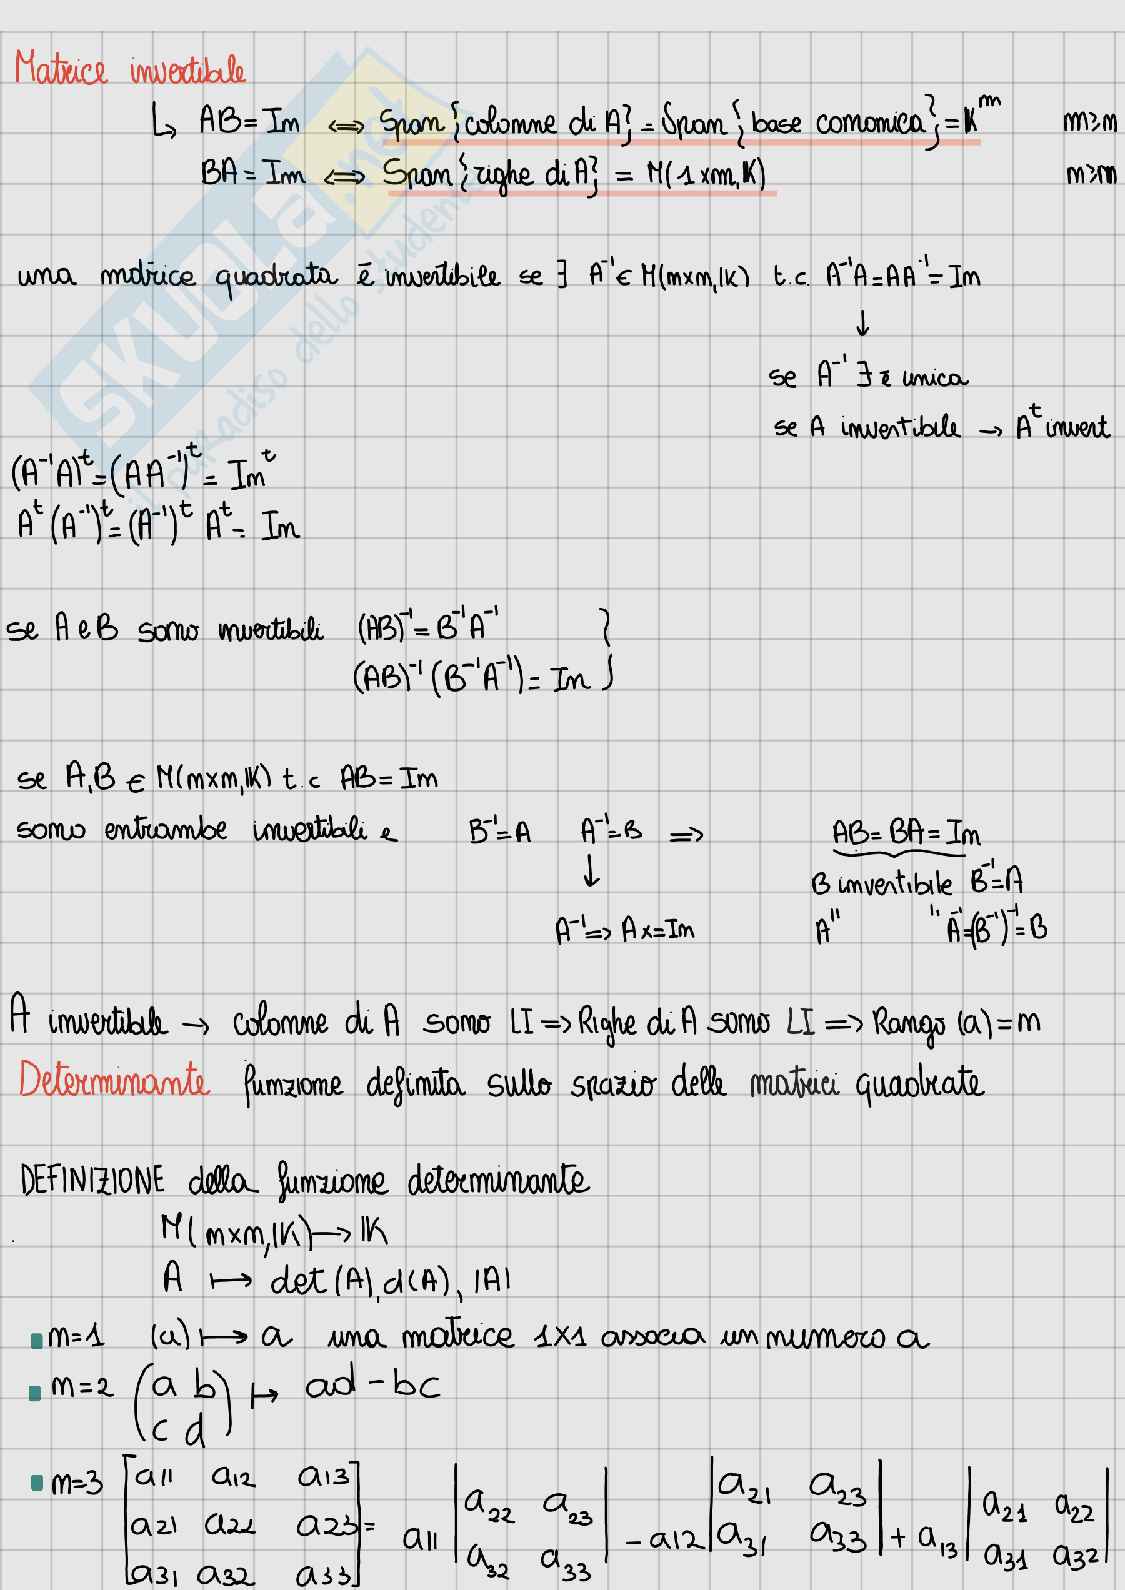 Matrice invertibile
↳ AB = Im ⟺ Span{colonne di A} = Span{base canonica} = K^m m≥n
BA = Im ⟺ Span{righe di A} = M(1×m, K) m≥m
una matrice quadrata è invertibile se ∃ A⁻¹ ∈ M(m×m, K) t.c. A⁻¹A = AA⁻¹ = Im
↓
se A⁻¹ ∃ è unica
se A invertibile → A^t invert
(A⁻¹A)^t = (AA⁻¹)^t = Im^t
A^t (A⁻¹)^t = (A⁻¹)^t A^t = Im
se A e B sono invertibili (AB)⁻¹ = B⁻¹A⁻¹ }
(AB)⁻¹ (B⁻¹A⁻¹) = Im
se A, B ∈ M(m×m, K) t.c AB = Im
sono entrambe invertibili e B⁻¹ = A A⁻¹ = B ⟹ AB = BA = Im
↓ B invertibile B⁻¹ = A
A⁻¹ ⟹ Ax = Im A " " A⁻¹ = (B⁻¹)⁻¹ = B
A invertibile → colonne di A sono LI ⟹ Righe di A sono LI ⟹ Rango (a) = m
Determinante funzione definita sullo spazio delle matrici quadrate
DEFINIZIONE della funzione determinante
M(m×m, K) ⟼ K
A ⟼ det(A), d(A), |A|
m=1 (a) ⟼ a una matrice 1×1 associa un numero a
m=2 (a b) ↦ ad - bc
(c d)
m=3 [a11 a12 a13] = a11 |a22 a23| - a12 |a21 a23| + a13 |a21 a22|
[a21 a22 a23] |a32 a33| |a31 a33| |a31 a32|
[a31 a32 a33]
SKUOLA.net
il paradiso dello studente